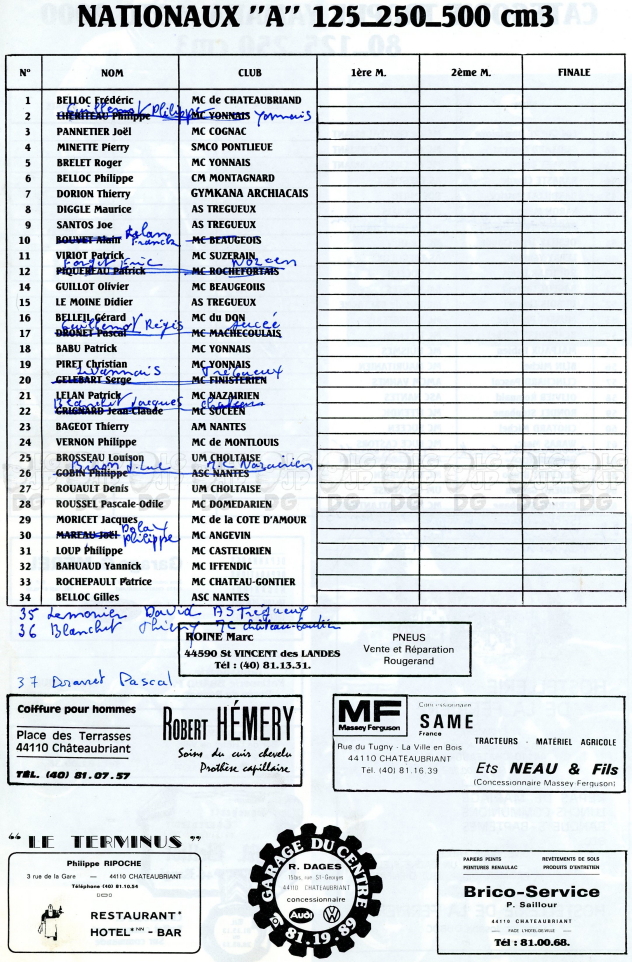 NATIONAUX "A" 125_250_500 cm3
N° NOM CLUB 1ère M. 2ème M. FINALE
1 BELLOC Frédéric MC de CHATEAUBRIAND
Guillemot Philippe Yonnais
2 LHERITEAU Philippe MC YONNAIS
3 PANNETIER Joël MC COGNAC
4 MINETTE Pierry SMCO PONTLIEUE
5 BRELET Roger MC YONNAIS
6 BELLOC Philippe CM MONTAGNARD
7 DORION Thierry GYMKANA ARCHIACAIS
8 DIGGLE Maurice AS TREGUEUX
9 SANTOS Joe AS TREGUEUX
Franck
10 BOUVET Alain MC BEAUGEOIS
11 VIRIOT Patrick MC SUZERAIN
Forget Eric
12 PIQUEREAU Patrick MC ROCHEFORTAIS
14 GUILLOT Olivier MC BEAUGEOIIS
15 LE MOINE Didier AS TREGUEUX
16 BELLEIL Gérard MC du DON
Guillemot Régis Sucée
17 DRONET Pascal MC MACHECOULAIS
18 BABU Patrick MC YONNAIS
19 PIRET Christian MC YONNAIS
Tregueux
20 GELEBART Serge MC FINISTERIEN
21 LELAN Patrick MC NAZAIRIEN
Blanchet Jacques
22 GRIGNARD Jean-Claude MC SUCEEN
23 BAGEOT Thierry AM NANTES
24 VERNON Philippe MC de MONTLOUIS
25 BROSSEAU Louison UM CHOLTAISE
J.Luc M.C Nazairien
26 GOBIN Philippe ASC NANTES
27 ROUAULT Denis UM CHOLTAISE
28 ROUSSEL Pascale-Odile MC DOMEDARIEN
29 MORICET Jacques MC de la COTE D'AMOUR
philippe
30 MAREAU Joël MC ANGEVIN
31 LOUP Philippe MC CASTELORIEN
32 BAHUAUD Yannick MC IFFENDIC
33 ROCHEPAULT Patrice MC CHATEAU-GONTIER
34 BELLOC Gilles ASC NANTES
35 Lemonier David AS Trégueux
36 Blanchet Thierry MC château-Gontier
37 Dranet Pascal
ROINE Marc
44590 St VINCENT des LANDES
Tél : (40) 81.13.31.
PNEUS
Vente et Réparation
Rougerand
Coiffure pour hommes
Place des Terrasses
44110 Châteaubriant
TÉL. (40) 81.07.57
ROBERT HÉMERY
Soins du cuir chevelu
Prothèse capillaire
MF
Massey Ferguson
Concessionnaire
SAME
France
Rue du Tugny - La Ville en Bois
44110 CHATEAUBRIANT
Tél. (40) 81.16.39
TRACTEURS - MATERIEL AGRICOLE
Ets NEAU & Fils
(Concessionnaire Massey-Ferguson)
"LE TERMINUS"
Philippe RIPOCHE
3 rue de la Gare — 44110 CHATEAUBRIANT
Téléphone (40) 81.10.54
RESTAURANT*
HOTEL*NN - BAR
GARAGE DU CENTRE
R. DAGES
15bis, rue St-Georges
44110 CHATEAUBRIANT
concessionnaire
Audi VW
☎ 81.19.89
PAPIERS PEINTS REVÊTEMENTS DE SOLS
PEINTURES RENAULAC PRODUITS D'ENTRETIEN
Brico-Service
P. Saillour
44110 CHATEAUBRIANT
FACE L'HOTEL-DE-VILLE
Tél : 81.00.68.